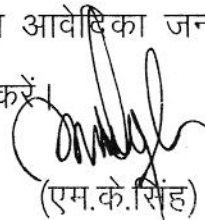 आवेदिका जन
करें।
(एम.के.सिंह)